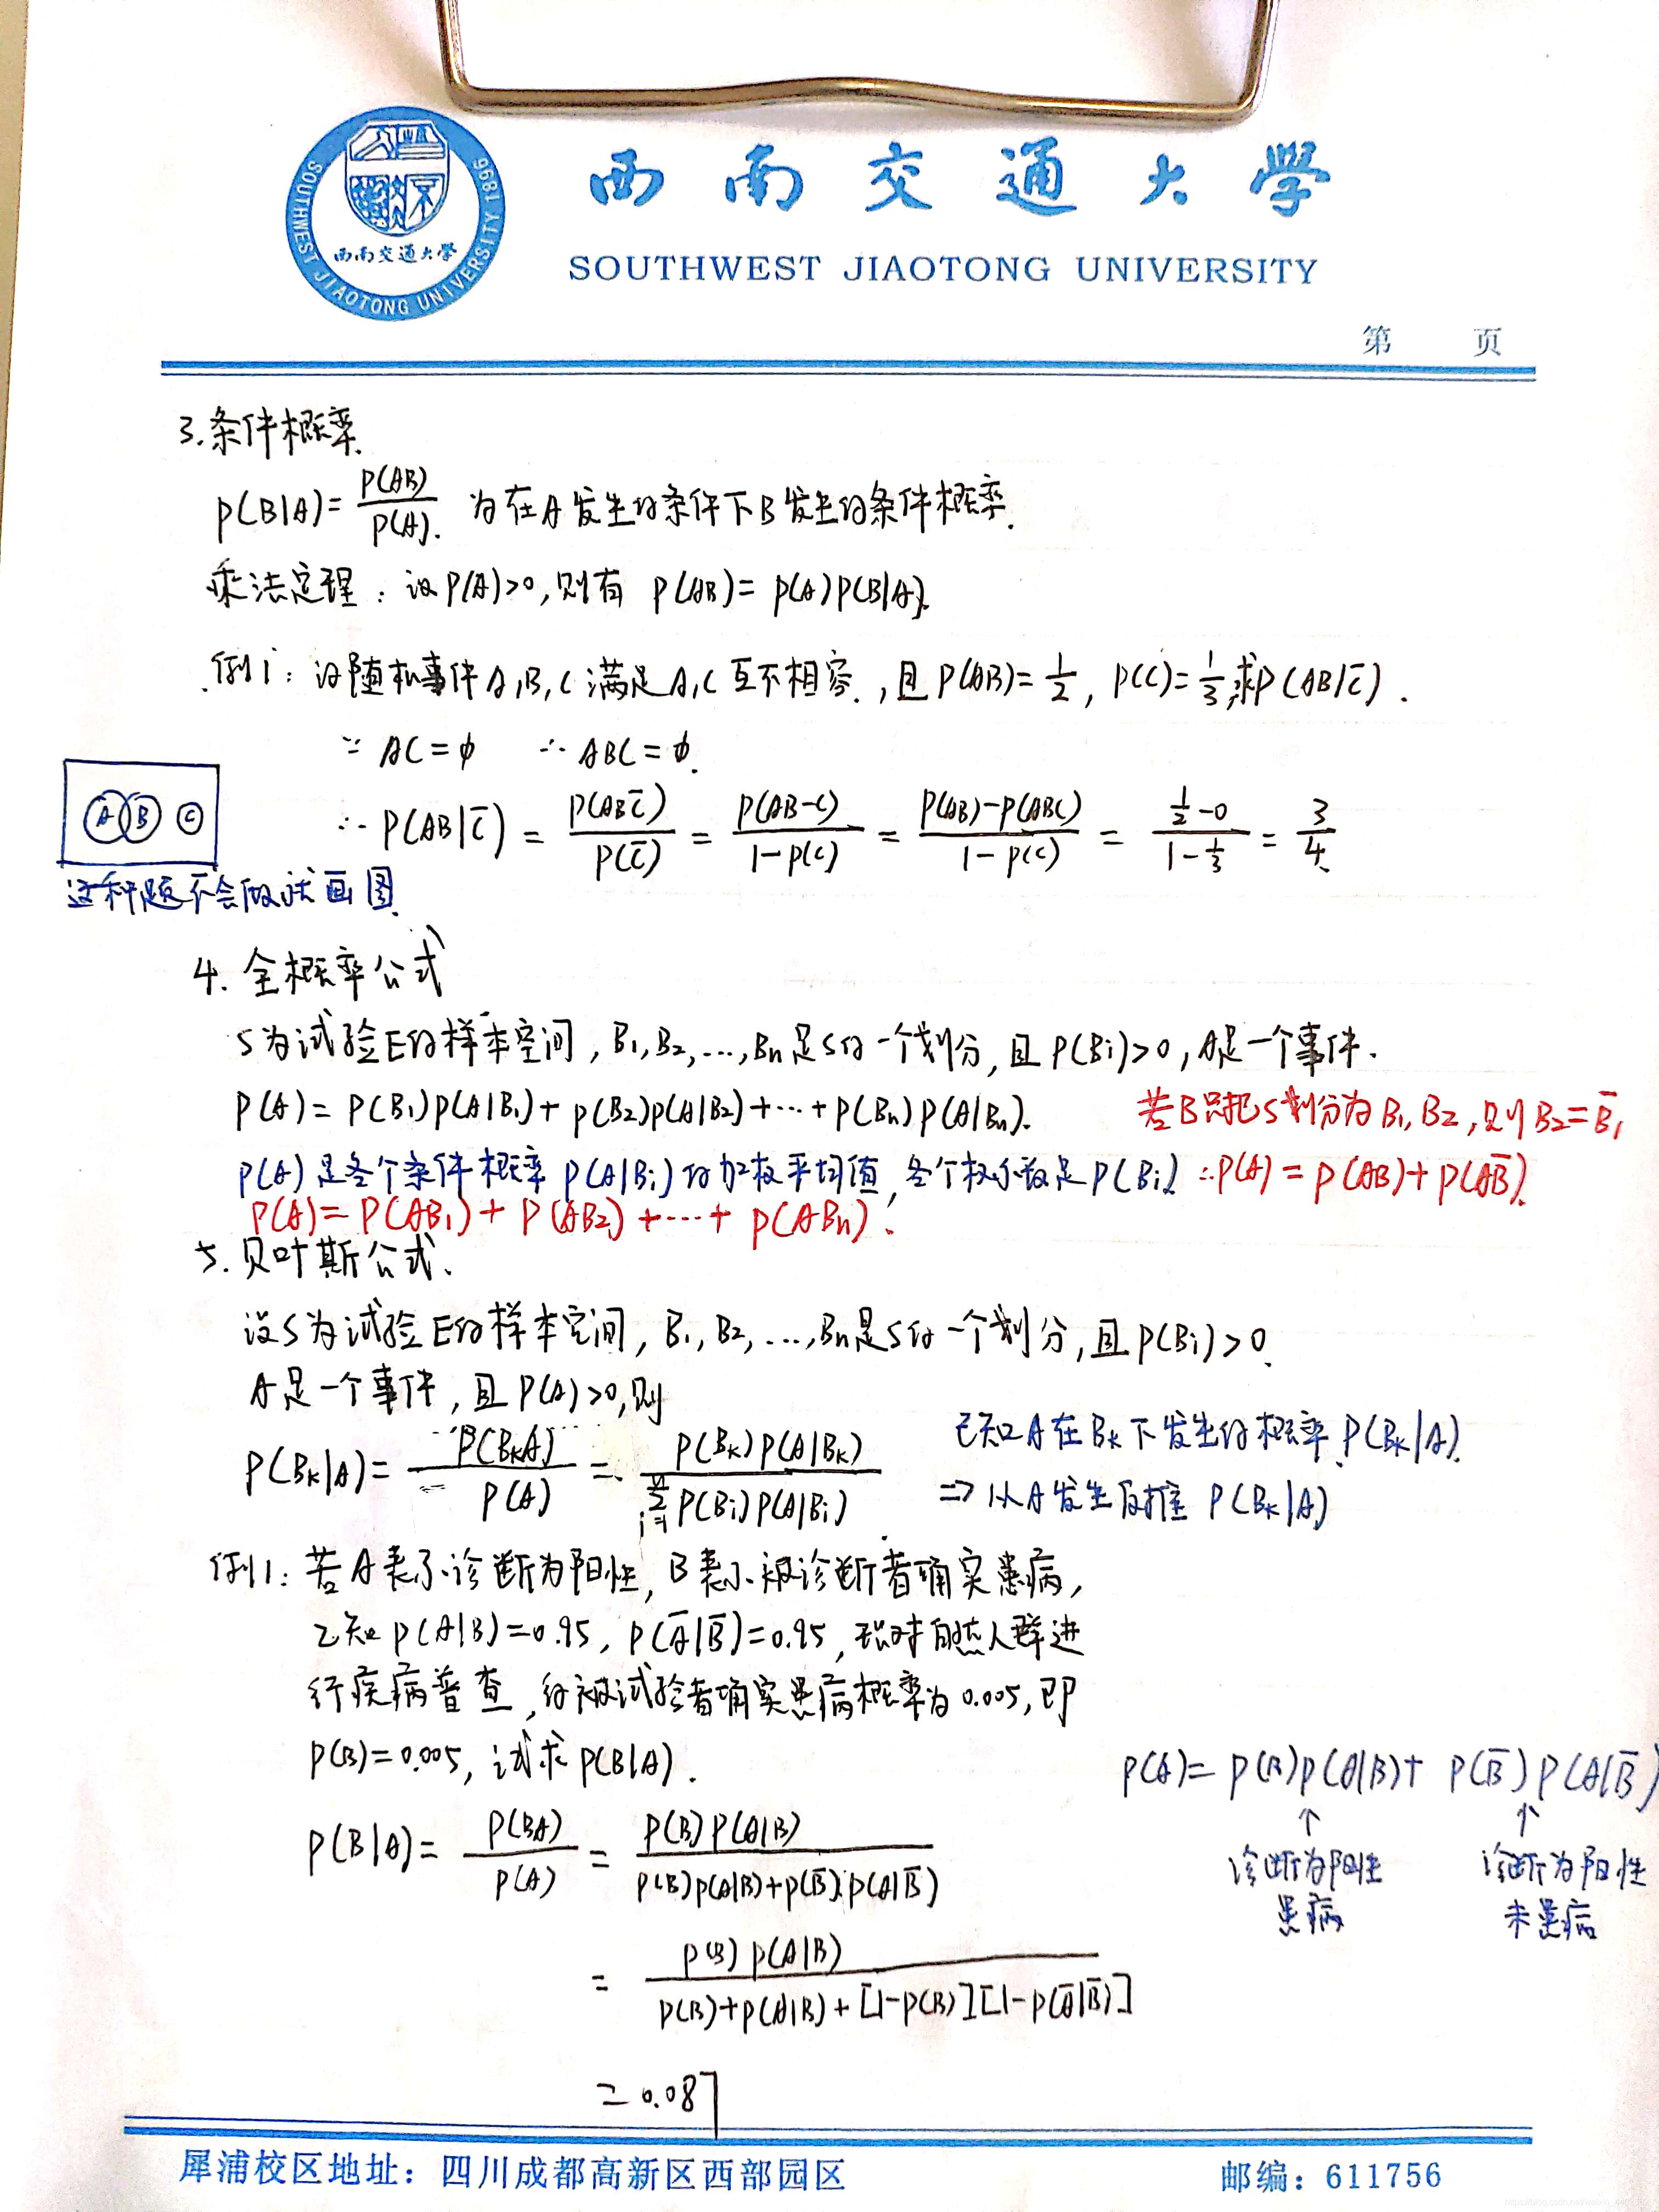 SOUTHWEST JIAOTONG UNIVERSITY 1896
西南交通大學
西南交通大學
SOUTHWEST JIAOTONG UNIVERSITY
第 页
3.条件概率.
P(B|A)=P(AB)/P(A). 为在A发生的条件下B发生的条件概率.
乘法定理:设P(A)>0,则有 P(AB)=P(A)P(B|A).
例1:设随机事件A,B,C满足A,C互不相容.,且P(AB)=1/2, P(C)=1/3,求P(AB|C̅).
∵ AC=φ ∴ ABC=φ.
A B C
∴ P(AB|C̅)=P(ABC̅)/P(C̅)=P(AB-C)/1-P(C)=P(AB)-P(ABC)/1-P(C)=1/2-0/1-1/3=3/4.
这种题不会做就画图.
4. 全概率公式
S为试验E的样本空间, B₁,B₂,...,Bn是S的一个划分,且P(Bi)>0,A是一个事件.
P(A)=P(B₁)P(A|B₁)+P(B₂)P(A|B₂)+...+P(Bn)P(A|Bn). 若B只把S划分为B₁,B₂,则B₂=B̅₁
P(A)是各个条件概率P(A|Bi)的加权平均值,各个权函数是P(Bi). ∴P(A)=P(AB)+P(AB̅).
P(A)=P(AB₁)+P(AB₂)+...+P(ABn).
5.贝叶斯公式.
设S为试验E的样本空间, B₁,B₂,...,Bn是S的一个划分,且P(Bi)>0.
A是一个事件,且P(A)>0,则
P(Bk|A)=P(BkA)/P(A)=P(Bk)P(A|Bk)/∑ⁿi=1 P(Bi)P(A|Bi) 已知A在Bk下发生的概率P(Bk|A).
⇒ 从A发生反推P(Bk|A)
例1:若A表示诊断为阳性,B表示被诊断者确实患病,
已知P(A|B)=0.95, P(A̅|B̅)=0.95,现对自然人群进
行疾病普查,的被试验者确实患病概率为0.005,即
P(B)=0.005,试求P(B|A).
P(A)=P(B)P(A|B)+P(B̅)P(A|B̅)
↑ ↑
诊断为阳性 诊断为阳性
患病 未患病
P(B|A)=P(BA)/P(A)=P(B)P(A|B)/P(B)P(A|B)+P(B̅).P(A|B̅)
=P(B)P(A|B)/P(B)+P(A|B)+[1-P(B)][1-P(A̅|B̅)]
=0.087
犀浦校区地址:四川成都高新区西部园区
邮编:611756